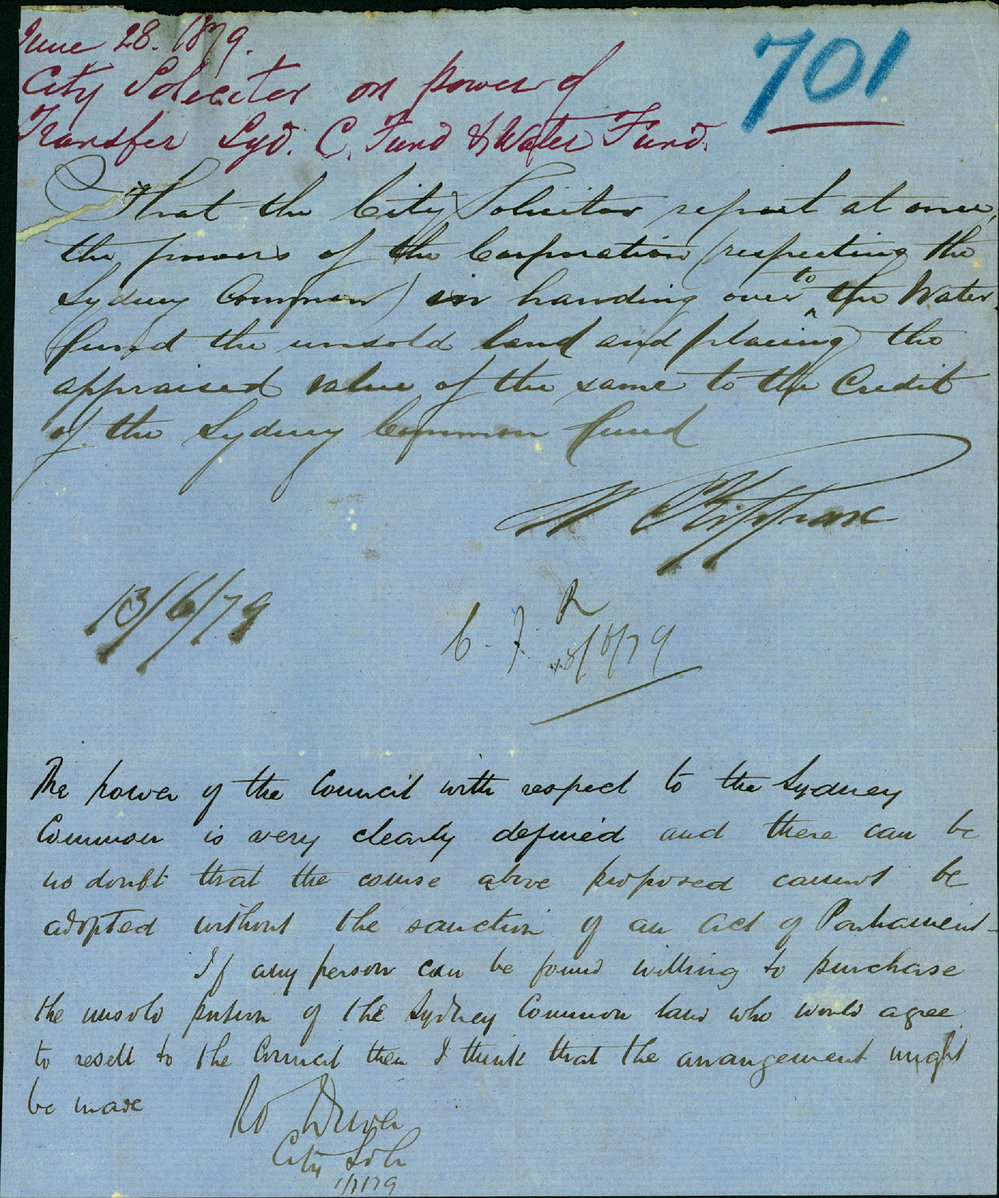 June 28. 1879.
701
City Solicitor on power of
Transfer Syd. C. Fund & Water Fund.
That the City Solicitor report at once,
the powers of the Corporation (respecting the
Sydney Common) in handing over to the Water
fund the unsold land and placing the
appraised value of the same to the Credit
of the Sydney Common fund
W Kippax
13/6/79
R
The power of the Council with respect to the Sydney
Common is very clearly defined and there can be
no doubt that the course above proposed cannot be
adopted without the sanction of an act of Parliament -
If any person can be found willing to purchase
the unsold portion of the Sydney Common land who would agree
to resell to the Council then I think that the arrangement might
be made
Driver
City Solr
1/7/79